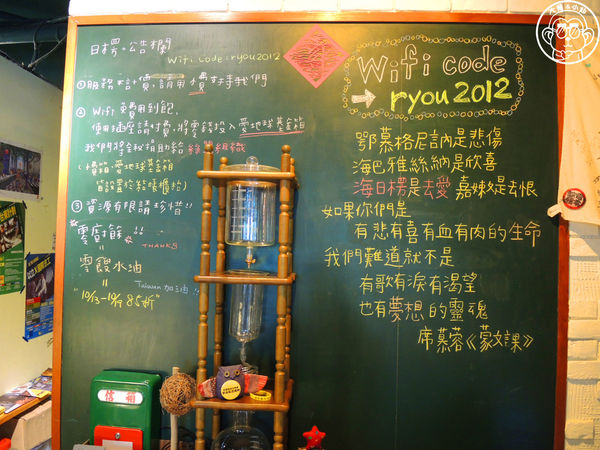 日楞。公告欄
Wifi code:ryou2012
①服務不計價,請用小費支持我們
② Wifi 免費用到飽,
使用插座請付費,將零錢投入愛地球基金箱
我們將全數捐助給綠色組織
(小費箱、愛地球基金箱
皆設置於結帳櫃抬)
③資源有限請珍惜!!
零廚餘!!
THANKS
=
零餿水油
Taiwan加油!!
=
"10/13-10/19 85折"
Wifi code
→ ryou 2012
鄂慕格尼訥是悲傷
海巴雅絲納是欣喜
海日楞是去愛 嘉嫩是去恨
如果你們是
有悲有喜有血有肉的生命
我們難道就不是
有歌有淚有渴望
也有夢想的靈魂
席慕蓉《蒙文課》
信箱